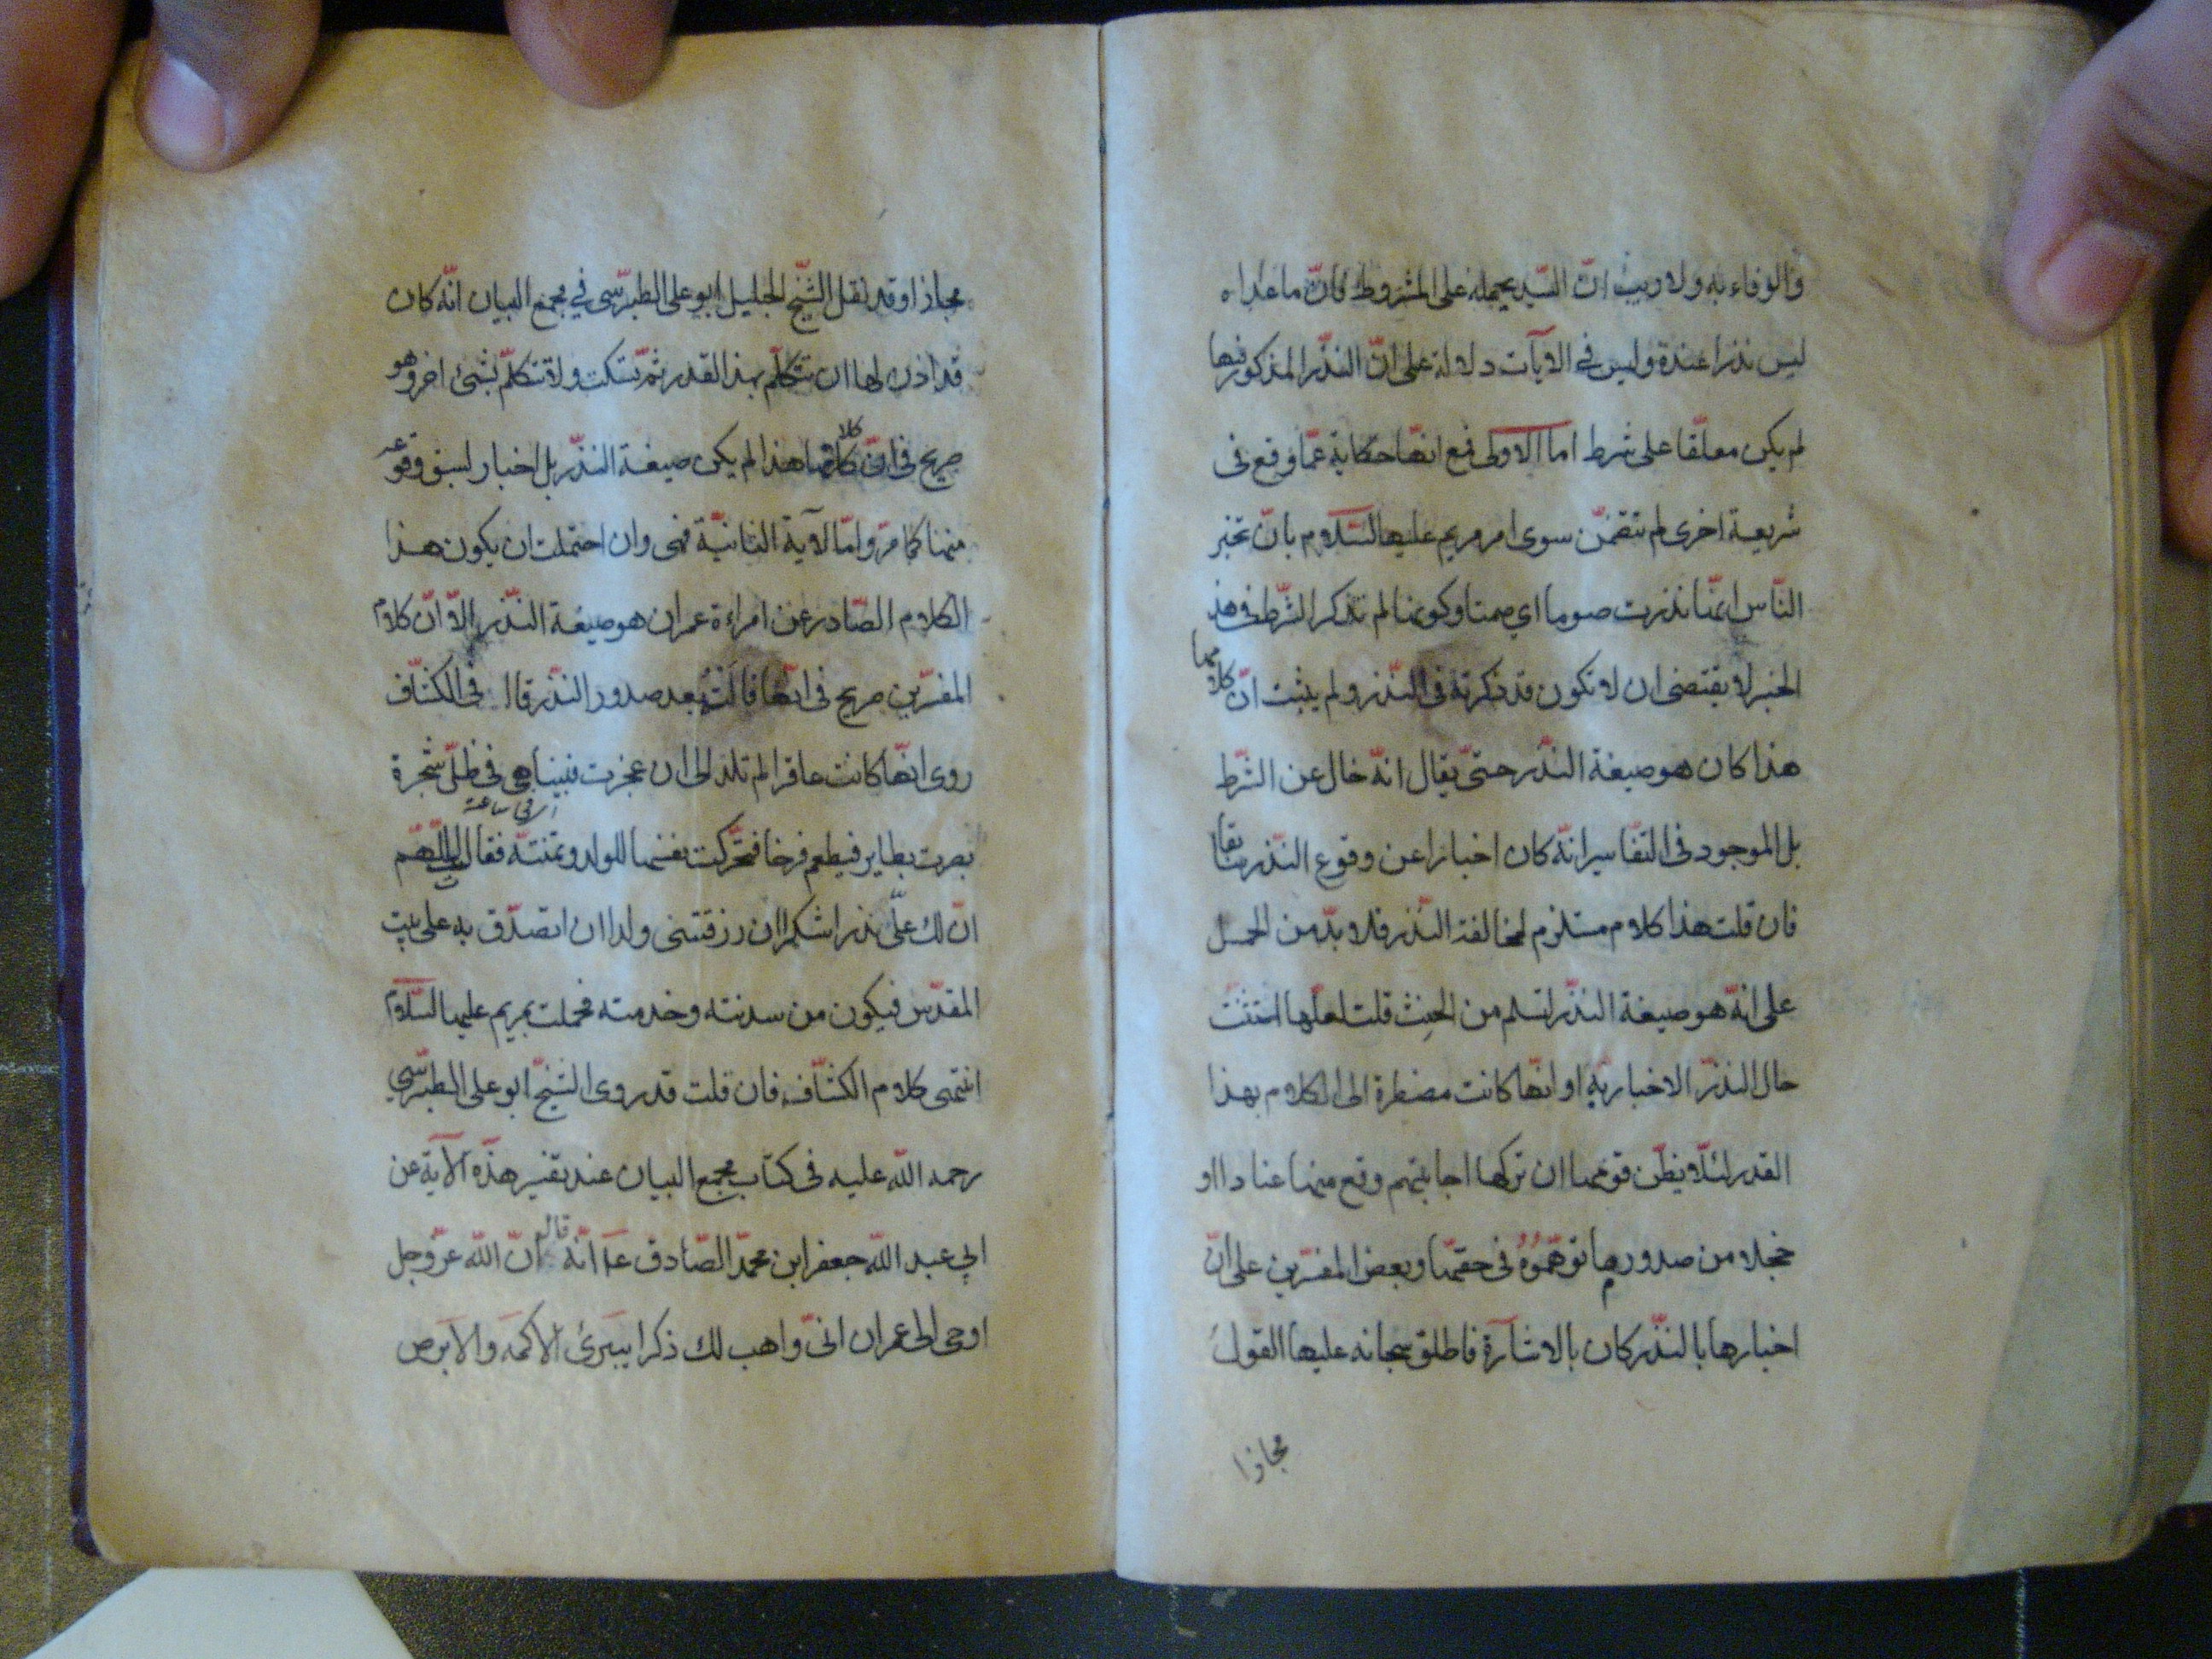 والوفاء به ولا ريب انّ السّيد يحمله على المشروط كانّ ما عداه
ليس نذرا عنده وليس في الآيات دلالة على انّ النّذر المذكور فيها
لم يكن معلّقا على شرط امّا الاولى فمع انّها حكاية عمّا وقع فى
شريعة اخرى لم تتضمّن سوى امر مريم عليها السّلام بانّ تخبر
النّاس انّها نذرت صوما اي صمتا وكونها لم تذكر الشّرط فى هذ
الخبر لا يقتضى ان لا تكون قد ذكرته فى النّذر ولم يثبت انّ كلامها
هذا كان هو صيغة النّذر حتىّ يقال انّه خال عن الشّرط
بل الموجود فى التفّاسير انّه كان اخبارا عن وقوع النّذر سابقا
فان قلت هذا كلام مستلزم لمخالفة النّذر فلا بدّ من الحمل
على انّه هو صيغة النّذر لتسلم من الحنث قلت لعلّها استثنت
حال النذّر الاخبار به او انّها كانت مضطرة الى الكلام بهذا
القدر لئلّا يظنّ قومها ان تركها اجابتهم وقع منها عنادا او
خجلا من صدور ما توهّموه فى حقّها وبعض المفسّرين على انّ
اخبارها بالنّذر كان بالاشارة فاطلق سبحانه عليها القول
مجازا
مجازا وقد نقل الشّيخ الجليل ابو على الطبرّسى في مجمع البيان انّه كان
قد اذن لها ان تتكلّم بهذا القدر ثمّ تسكت ولا تتكلّم بشئ اخر وهو
صريح فى انّ كلامها هذا لم يكن صيغة النذّر بل اخبار لسبق وقوعه
منها كما مرّ وامّا الآية الثانيّة فهى وان احتملت ان يكون هذا
الكلام الصّادر عن امراءة عمران هو صيغة النّذر الاّ انّ كلام
المفسّرين صريح فى انّها قالته بعد صدور النذر قال فى الكشّاف
روى انّها كانت عاقرا لم تلد الى ان عجزت فبينا هي فى ظلّ شجرة
بصرت بطاير فيطعم فرخا فتحّركت نفسها للولد وتمنتّه فقالت اللّهمّ
انّ لك علّي نذرا شكرا ان رزقتنى ولدا ان اتصدّق به على بيت
المقدّس فيكون من سدنته وخدمته فحملت بمريم عليها السّلام
انتهى كلام الكشّاف فان قلت قد روى الشّيخ ابو على الطبرّسي
رحمه الله عليه فى كتاب مجمع البيان عند تفسير هذه الآية عن
ابي عبد الله جعفر ابن محمّد الصّادق ع انّه قال انّ الله عزّوجل
اوحى الى عمران انىّ واهب لك ذكرا يبرئ الاكمه والابرص